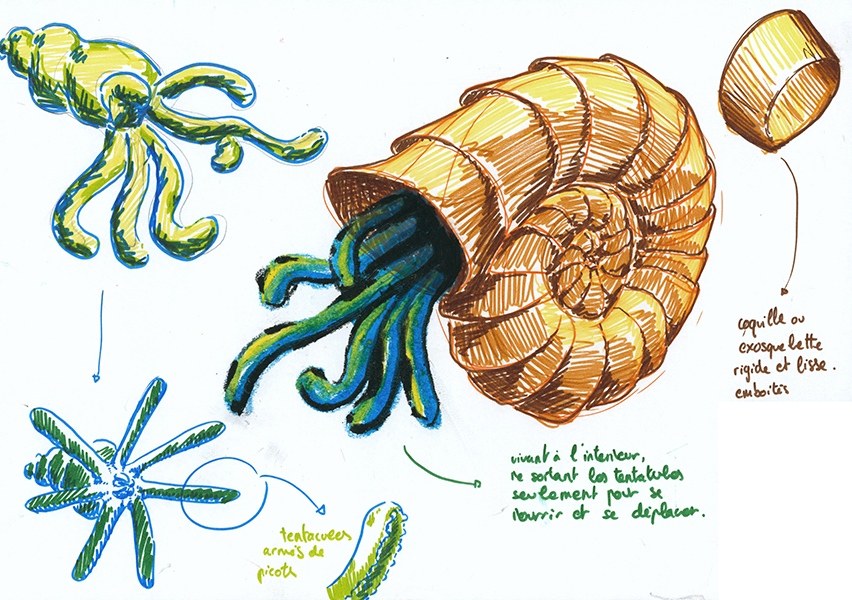 coquille ou
exosquelette
rigide et lisse.
emboités
vivant à l'interieur,
ne sortant les tentacules
seulement pour se
nourrir et se déplacer.
tentacules
armés de
picots